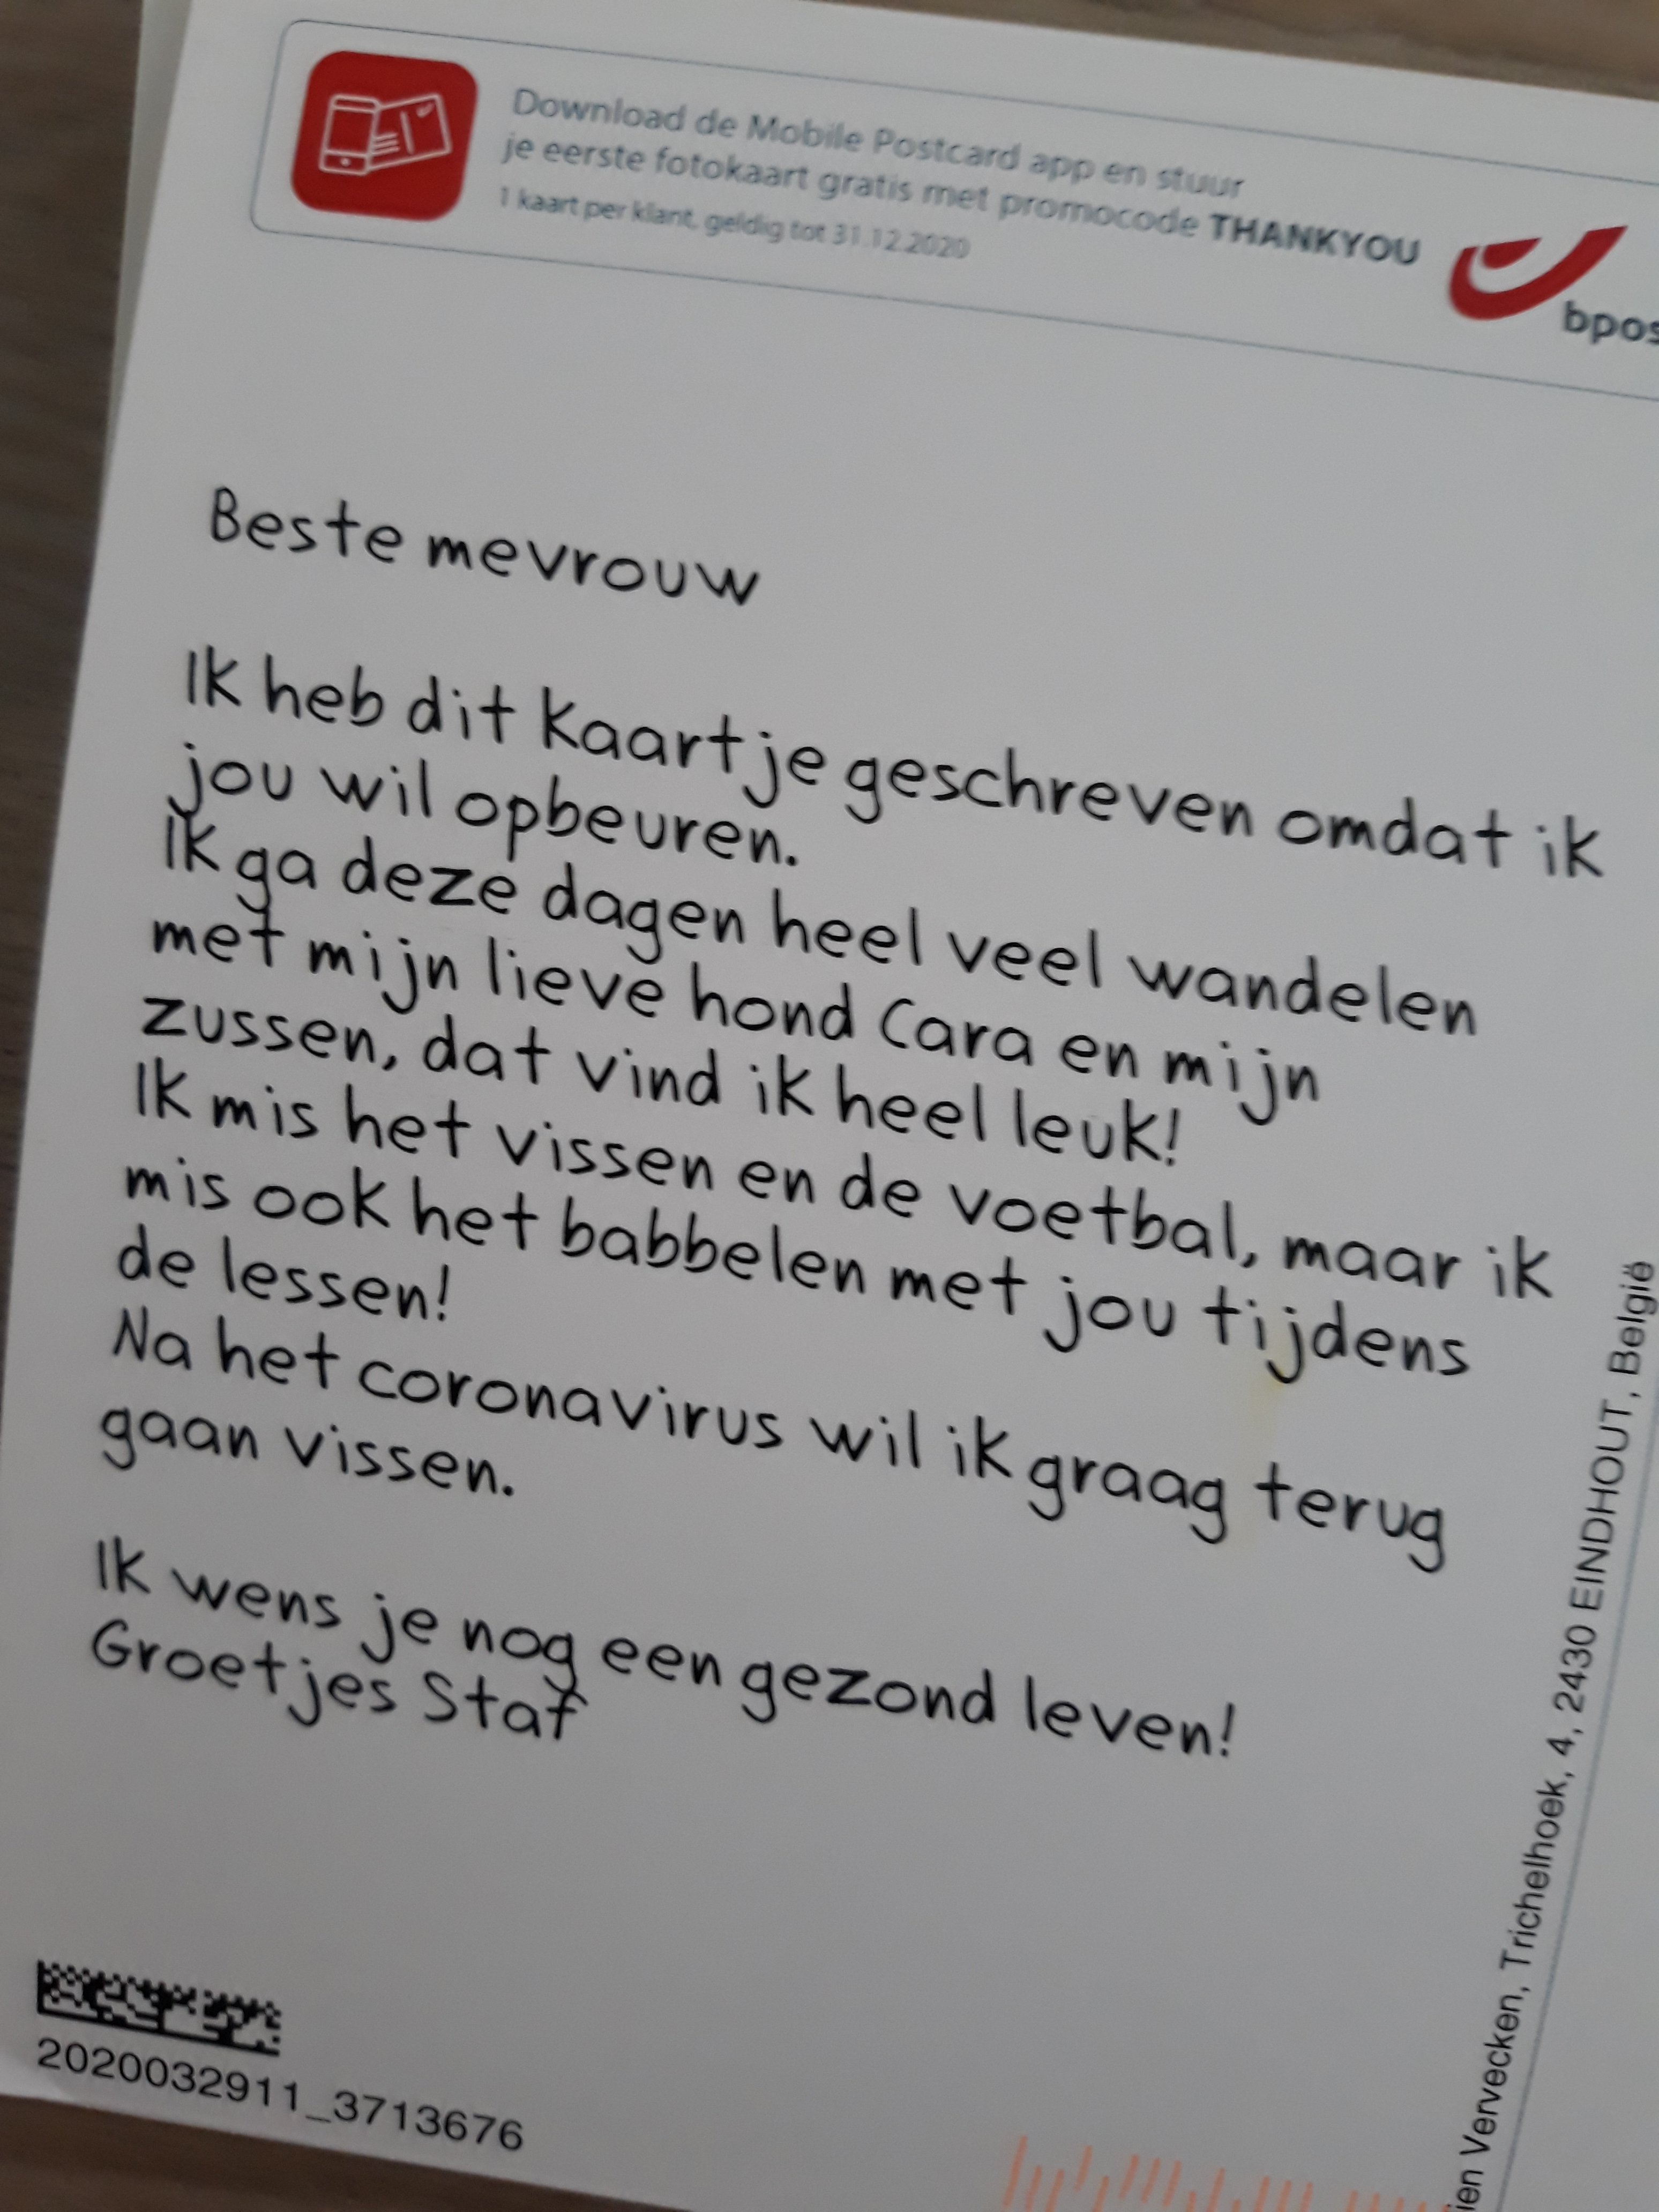 Download de Mobile Postcard app en stuur
je eerste fotokaart gratis met promocode THANKYOU
1 kaart per klant, geldig tot 31.12.2020
Beste mevrouw
Ik heb dit kaartje geschreven omdat ik
jou wil opbeuren.
Ik ga deze dagen heel veel wandelen
met mijn lieve hond Cara en mijn
zussen, dat vind ik heel leuk!
Ik mis het vissen en de voetbal, maar ik
mis ook het babbelen met jou tijdens
de lessen!
Na het coronavirus wil ik graag terug
gaan vissen.
Ik wens je nog een gezond leven!
Groetjes Staf
2020032911_3713676
Vervecken, Trichelhoek, 4, 2430 EINDHOUT, België